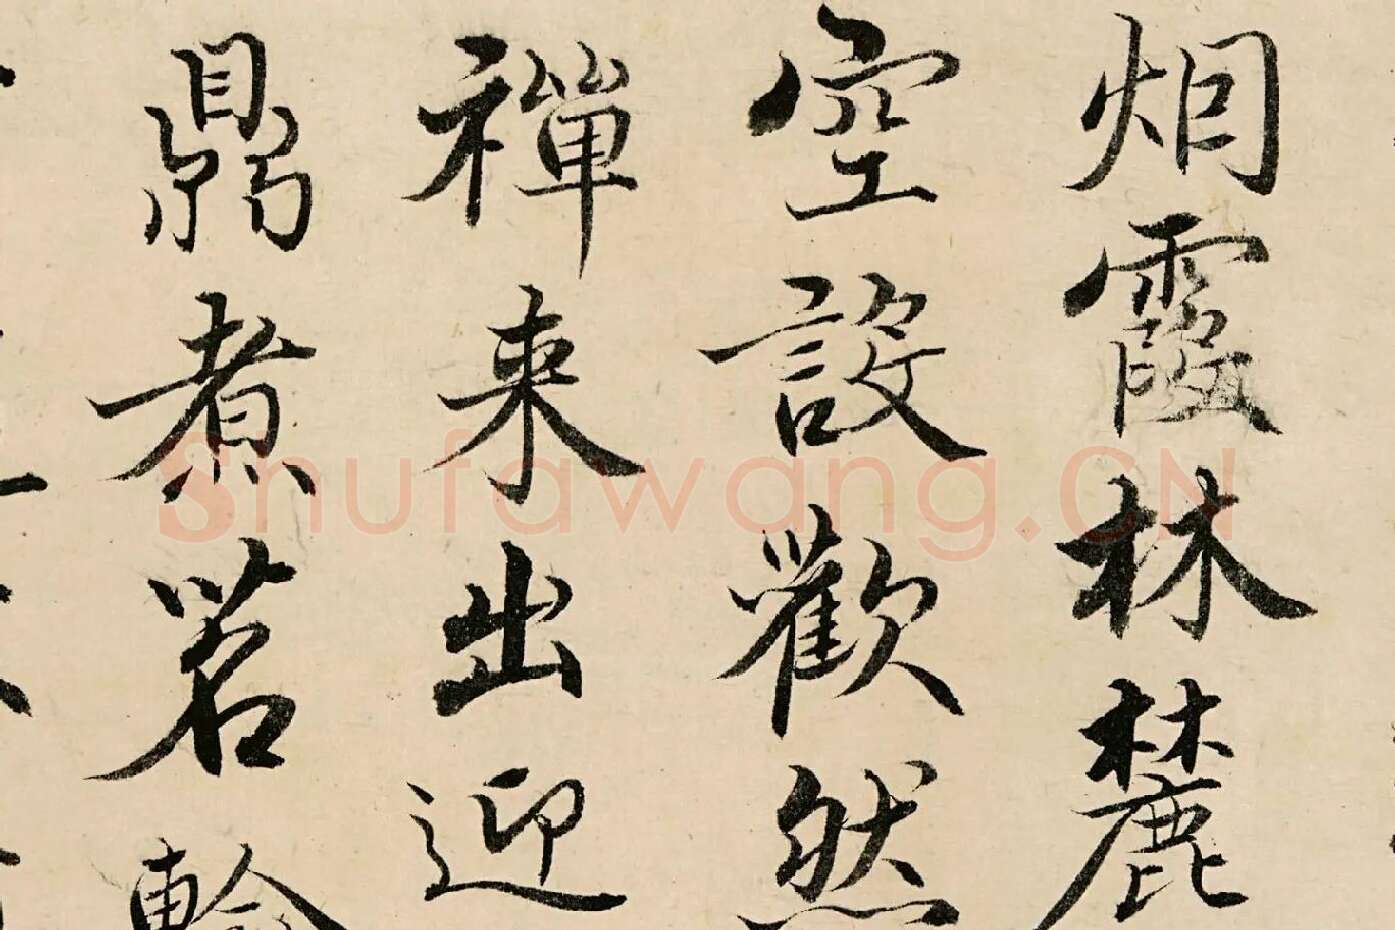 烟霞林麓
空設歡然
禪来出迎
鼎煮茗
Shufawang.CN